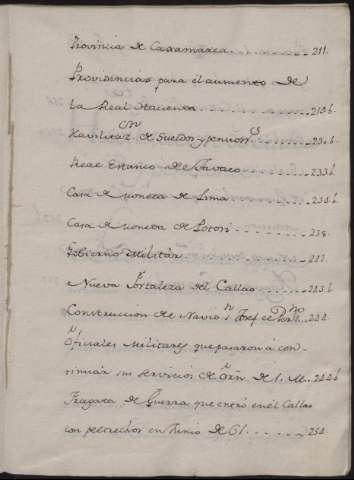 Provincia de Caxamarca . . . . . . . 211.
Providencias para el aumento de
la Real Hacienda . . . . . . . 219 b
de Sueldos y pensions . . . 230 b.
Real Estanco de Tavaco . . . . . . 233 b
Casa de Moneda de Lima . . . . . 235 b.
Casa de Moneda de Potosi . . . . . 238.
Gobierno Militar . . . . . .
Nueva Fortaleza del Callao . . . . . 223 b
Construccion de Navio Sn Josef el . . . 224.
Oficiales Militares que pasaron á con-
tinuar sus servicios de orn de S. M. 224 b
Fragata de Guerra que entró en el Callao
con peltrechos en Junio de 61 . . . . . . . 254.